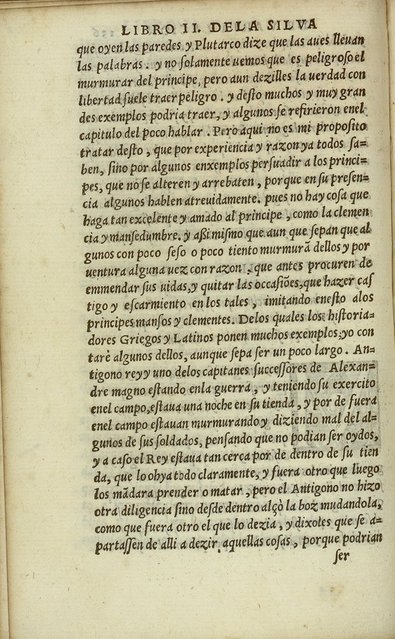 LIBRO II. DELA SILVA
que oyen las paredes y Plutarco dize que las aues lleuan
las palabras. y no solamente uemos que es peligroso el
murmurar del principe, pero aun dezilles la verdad con
libertad suele traer peligro. y desto muchos y muy gran
des exemplos podria traer, y algunos se refirieron enel
capitulo del poco hablar. Pero aqui no es mi proposito
tratar desto, que por experiencia y razon ya todos sa-
ben, sino por algunos enxemplos persuadir a los princi-
pes, que no se alteren y arrebaten, porque en su presen-
cia algunos hablen atreuidamente. pues no hay cosa que
haga tan excelente y amado al principe, como la clemen
cia y mansedumbre. y aßi mismo que aun que sepan que al
gunos con poco seso o poco tiento murmurã dellos y por
uentura alguna uez con razon, que antes procuren de
emmendar sus uidas, y quitar las occasiões, que hazer cas
tigo y escarmiento en los tales, imitando enesto alos
principes mansos y clementes. Delos quales los historia-
dores Griegos y Latinos ponen muchos exemplos: yo con
tarè algunos dellos, aunque sepa ser un poco largo. An-
tigono rey y uno delos capitanes successores de Alexan-
dre magno estando en la guerra, y teniendo su exercito
enel campo, estaua una noche en su tienda, y por de fuera
enel campo estauan murmurando y diziendo mal del al-
gunos de sus soldados, pensando que no podian ser oydos,
y a caso el Rey estaua tan cerca por de dentro de su tien
da, que lo ohya todo claramente, y fuera otro que luego
los mãdara prender o matar, pero el Antigono no hizo
otra diligencia sino desde dentro alçò la boz mudandola,
como que fuera otro el que lo dezia, y dixoles que se a-
partassen de alli a dezir aquellas cosas, porque podrian
ser